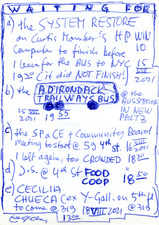 WAITING FOR
a) the SYSTEM RESTORE
on Curtis Member's HP WIN
Computer to finish before 10
I leave for the BUS to NYC 15
19:30 (it did NOT FINISH!) VIII 2021
b) the ADIRONDACK
TRAILWAYS BUS
@ the BUS STATION
IN NEW PALTZ
15 VIII 2021 19 55
c) the SPaCE + Community Board
meeting to start @ 59 4th St. 18 VIII 2021
I left again, too CROWDED 18 30
d) J.S. @ 4th St FOOD
COOP 18 50
e) CECILIA
CHUECA cex Y-Gall. on 5th fl
to come @ 319 18 VIII 2021 @ 319